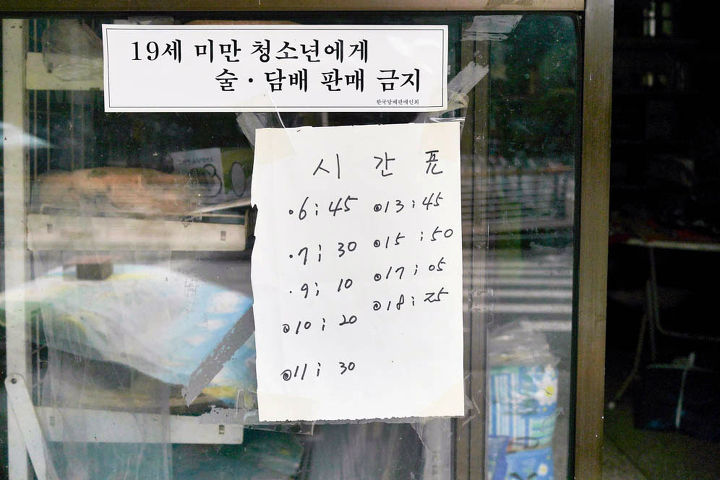 19세 미만 청소년에게
술·담배 판매 금지
한국담배판매인회
시 간 표
·6:45
·7:30
·9:10
◎10:20
◎11:30
◎13:45
◎15:50
◎17:05
◎18:25